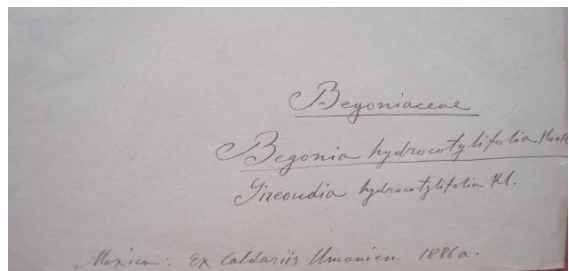 Begoniaceae
Begonia hydrocotylifolia Hook
Gireoudia hydrocotylifolia Kl.
Mexico: Ex Caldariis Umanien. 1886a.